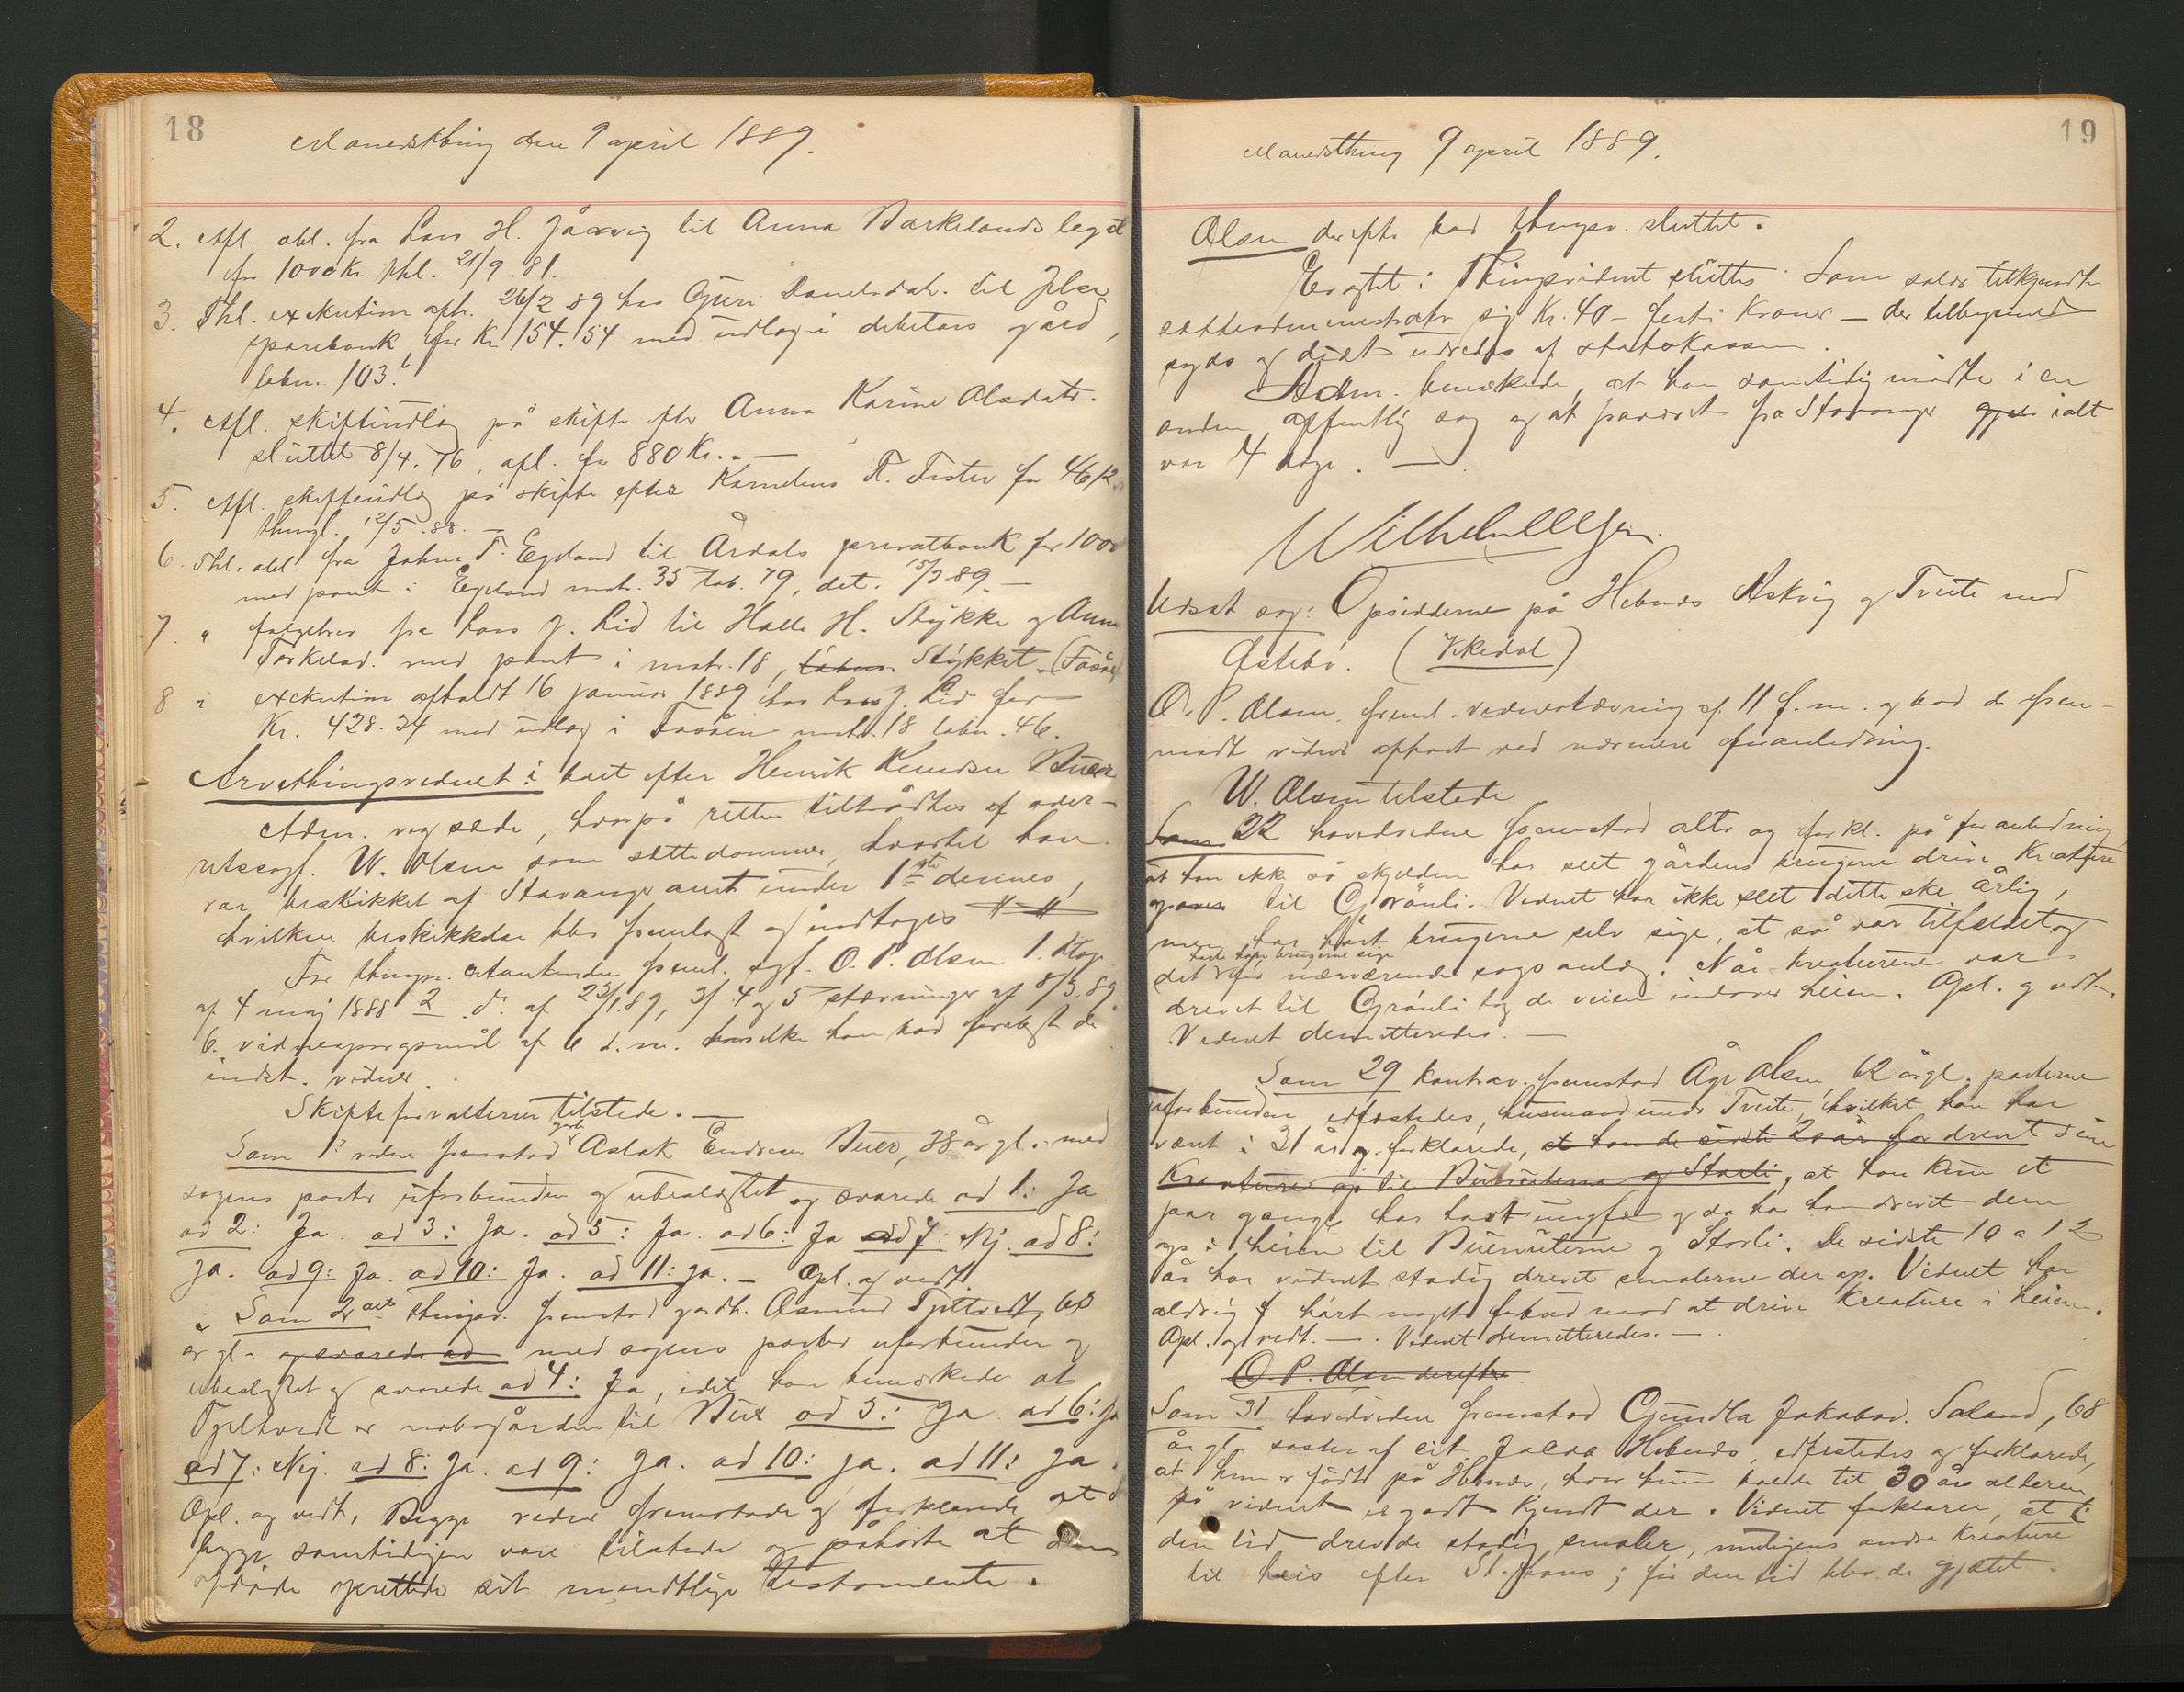 18
Maanedsthing den 9 april 1889.
2. Afl. obl. fra Lars H. Jåsvig til Anna Barkelands legat
for 1000 Kr. thl. 21/9.81.
3. Thl. exekution afh. 26/2 89 hos Guri Danielsdat. til Jelse
sparebank for Kr 154.54 med udlæg i debitors gård,
løbn. 103.b
4. Afl. skifteudlæg på skifte efter Anna Karine Olsdatr.
sluttet 8/4.76, afl. for 880 Kr. —
5. Afl. skifteudlæg på skifte efter Kornelius T. Fister for 4612
thingl. 12/5.88. —
6. Thl. obl. fra Johan T. Egeland til Årdals privatbank for 1000
med pant i Egeland matr. 35 løb. 79, dat. 15/3 89. —
7. " følgebrev fra Lars J. Lid til Halle H. Stykke og Anna
Torkelsd. med pant i matr. 18, løbnr. Stykket (Fosåen)
8 " exekution afholdt 16 januar 1889 hos Lars J. Lid for
Kr. 428.34 med udlæg i Fosåen matr. 18 løbn. 46.
Arvethingsvidnet i boet efter Henrik Knudsen Buer
Adm. veg sæde, hvorpå retten tiltrådtes af over-
retssagf. W. Olsen som sættedommer, hvortil han
var beskikket af Stavanger amt under 1ste dennes,
hvilken beskikkelse blev fremlagt og indtages # #
For thingv. rekvirenden freml. sgf. O. P. Olsen 1. Ktag.
af 4 maj 1888 2 d. af 23/1.89, 3/ 4 og 5 stævninger af 8/3.89
6. vidnespørgsmål af 6 d. m. hvilke han bad forelagt de
indst. vidner.
Skifteforvalteren tilstede. —
Som 1ste vidne fremstod gårdb. Aslak Endresen Buer, 38 år gl. med
sagens parter uforbunden og ubeslægtet og svarede ad 1: Ja
ad 2: Ja. ad 3: Ja. ad 5: Ja. ad 6: Ja ad 7: Nej. ad 8:
Ja. ad 9: Ja. ad 10: Ja. ad 11: Ja. — Opl. og vedt.
Som 2det thingsv. fremstod gårdb. Asmund Tjeltvedt, 63
år gl. og svarede ad med sagens parter uforbunden og
ubeslægtet og svarede ad 4: Ja, idet han bemærkede at
Tjeltvedt er nabogården til Buer ad 5: Ja ad 6: Ja
ad 7: Nej. ad 8: Ja. ad 9: Ja. ad 10: Ja. ad 11: Ja.
Opl. og vedt. Begge vidner fremstode og forklarede at
begge samtidigen vare tilstede og påhørte at den
afdøde oprettede sit mundtlige testamente.
19
Maanedsthing 9 april 1889.
Olsen derefter bad thingsv. sluttet.
Eragtet: Thingsvidnet sluttes. Som salær tilkjendtes
sætteadministrator sig Kr. 40 — forti Kroner — der tilligemed
og diæt udredes af statskassen.
Adm. bemærkede, at han samtidig mødte i en
anden offentlig sag og at fraværet fra Stavanger ialt
var 4 dage. —
Wilhelm Olsen.
Udsat sag: Opsidderne på Hebnes Askvig og Tveite mod
Østebø. (Vikedal)
O. P. Olsen freml. vidnestævning af 11 f. m. og bad de frem-
mødte vidner afhørt ved nærmere foranledning.
W. Olsen tilstede
Som 22 hovedvidne fremstod atter og forkl. på foranledning
at han ikke så skjelden har seet gårdens brugere drive kreature
til Grønli. Vidnet har ikke seet dette ske årlig,
men har hørt brugerne selv sige, at så var tilfældet og
det før nærværende sags anlæg. Når kreaturene var
drevet til Grønli tog de veien indover heien. Opl. og vedt.
Vidnet demitteredes. —
Som 29 kontrav. fremstod Åge Olsen 62 årgl. parterne
uforbunden edfæstedes, husmand under Tveite, hvilket han har
været i 31 år og forklarede, at han de sidste 20 år har drevet sine
kreature op til Buernuterne og Storli, at han kun et
par gange har havt ungfæ og da har han drevet dem
op i heien til Buernuterne og Storli. De sidste 10 a 12
år har vidnet stadig drevet smalerne der op. Vidnet har
aldrig hørt noget forbud mod at drive kreature i heien.
Opl. og vedt. —. Vidnet demitteredes. —
O. P. Olsen derefter
Som 31 hovedvidne fremstod Gundla Jakobsd. Saland, 68
år gl. søster af cit. Jakob Hebnes, edfæstedes og forklarede,
at hun er født på Hebnes, hvor hun havde til 30 års alderen
så vidnet er godt kjendt der. Vidnet forklarer, at i
den tid drevde stadig smaler, muligens andre kreature
til heis efter St. Hans; før den tid blev de gjætet.